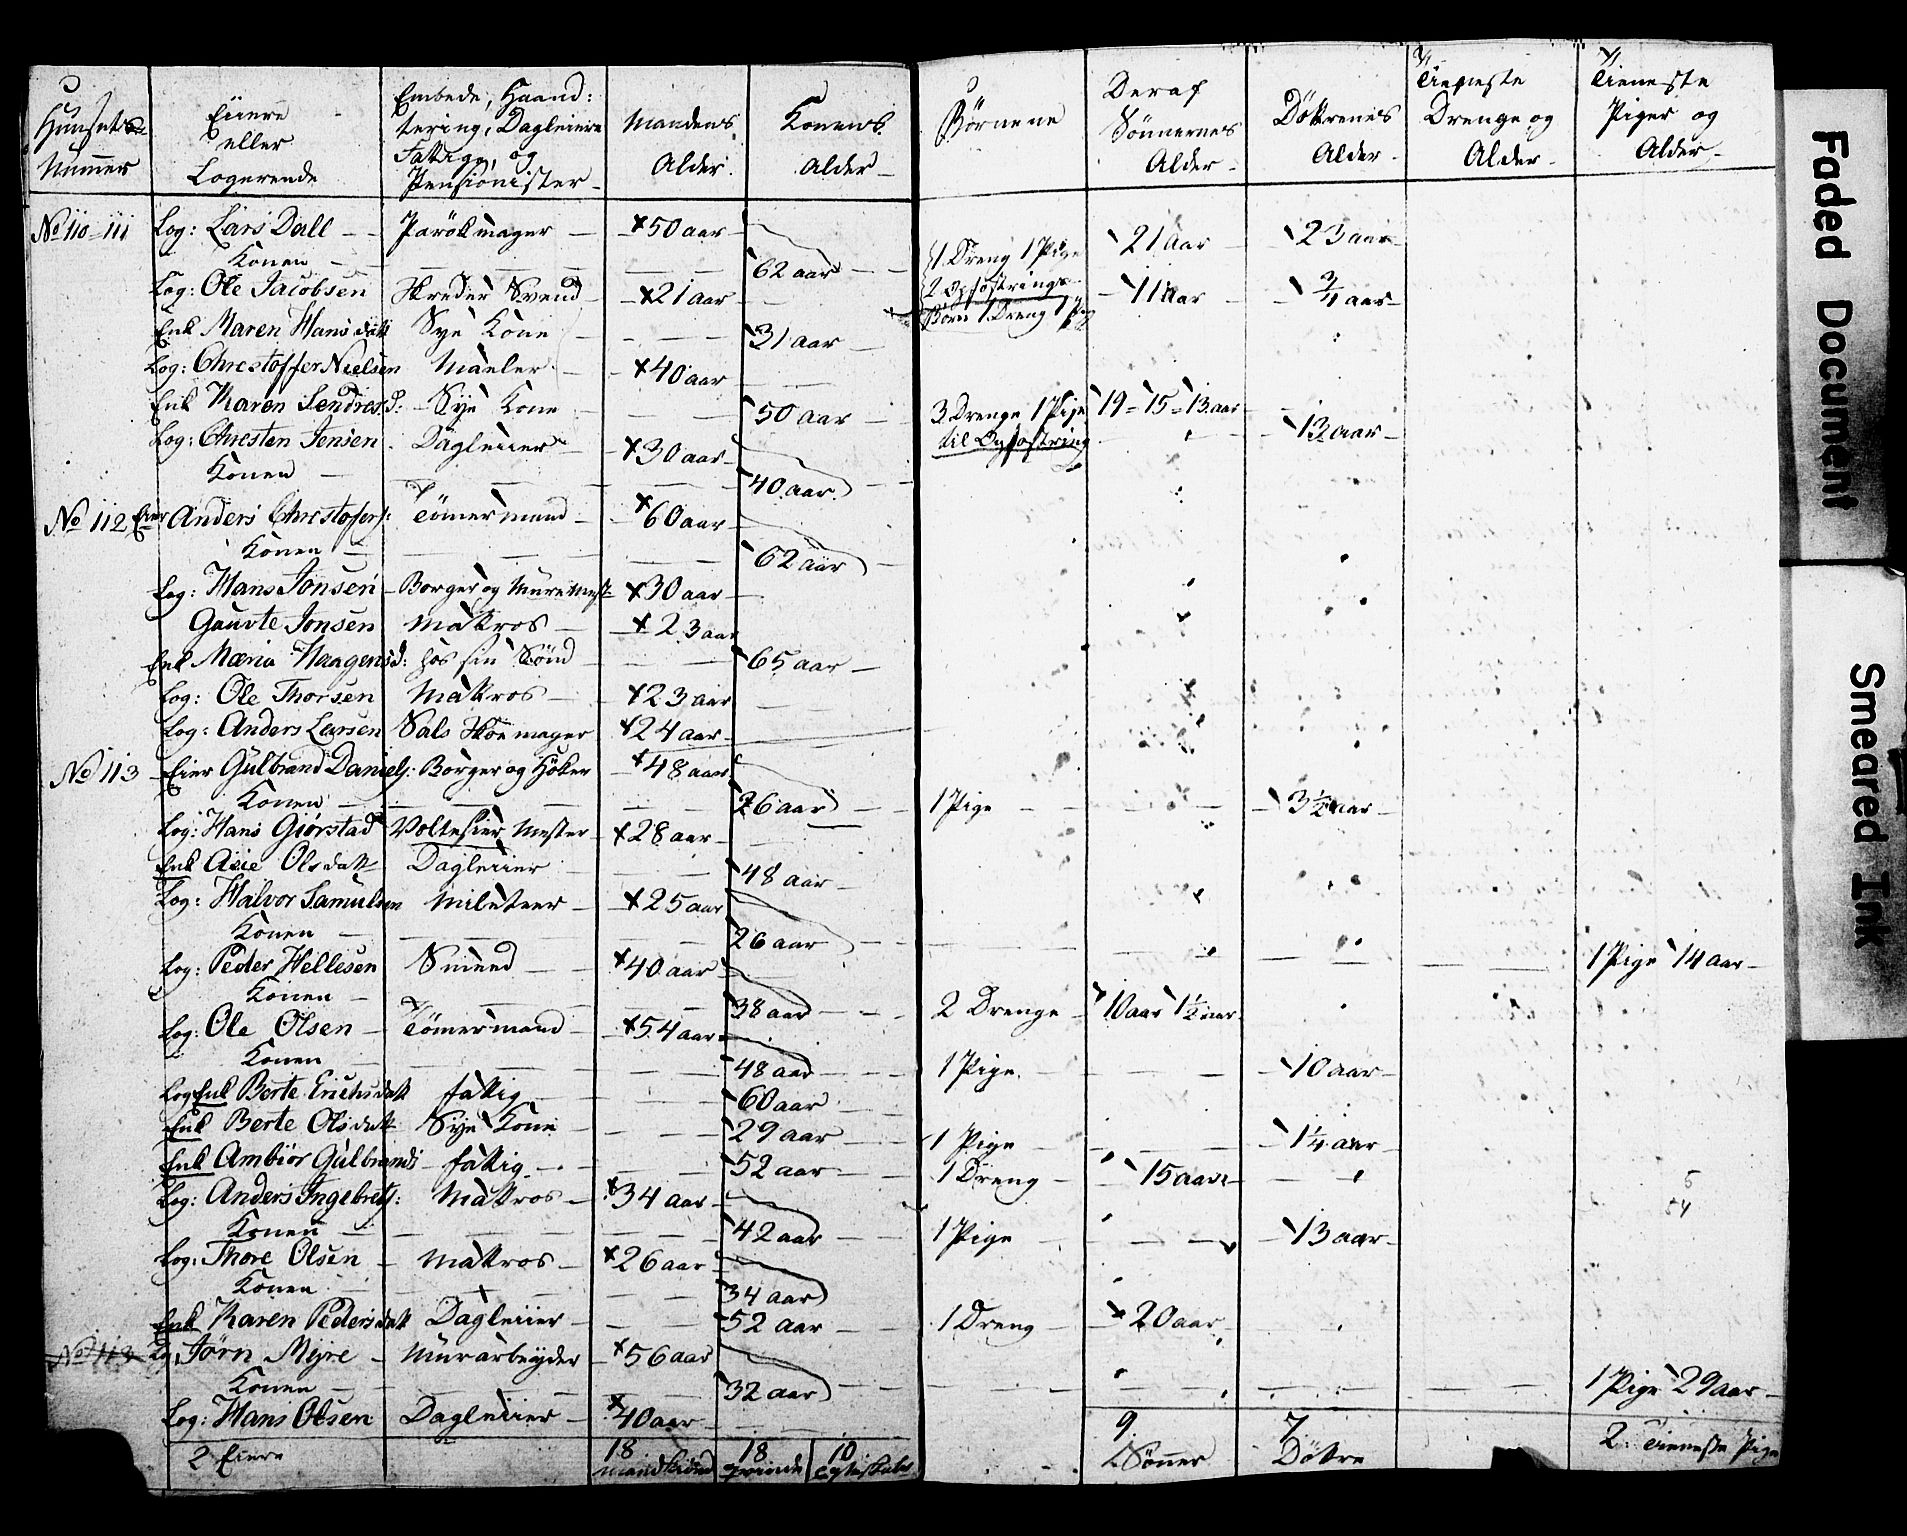 Huusets Nummer | Eiere eller Logerende | Embede, Haandtering, Dagleiere Fattige, og Pensionister | Mandens Alder. | Konens Alder | Börnene | Deraf Sönnernes Alder | Döttrenes Alder | Tieneste Drenge og Alder | Tieneste Piger og Alder
No 110-111 | Log: Lars Dall | Parökmager | 50 aar
Konen | 62 aar | 1 Dreng 1 Pige | 21 aar | 23 aar
Log: Ole Jacobsen | Skreder Svend | 21 aar | 2 opfostrings Börn 1 Dreng 1 Pige | 11 aar | 3/4 aar
Enk Maren Hansdatt | Sye Kone | 31 aar
Log: Christoffer Nielsen | Maler | 40 aar
Enk Karen Sendresd: | Sye Kone | 50 aar | 3 Drenge 1 Pige til Opfostring | 19 = 15 = 13 aar | 13 aar
Log: Chresten Jensen | Dagleiier | 30 aar
Konen | 40 aar
No 112 | Eier Anders Christofers: | Tömermand | 60 aar
Konen | 62 aar
Log: Hans Jonsen | Borger og Muremest: | 30 aar
Gauvte Jonsen | Matros | 23 aar
Enk Maria Haagensd: | hos sin Sönd | 65 aar
Log: Ole Thorsen | Matros | 23 aar
Log: Anders Larsen | Skoemager | 24 aar
No 113 | Eier Gulbrand Daniels: | Borger og Höker | 48 aar
Konen | 26 aar | 1 Pige | 3 1/2 aar
Log: Hans Giörstad | Voltesier Mester | 28 aar
Enk Olsdatt | Dagleiier | 48 aar
Log: Halvor Samulsen | Militeer | 25 aar
Konen | 26 aar | 1 Pige 14 aar
Log: Peder Hellesen | Smed | 40 aar
Konen | 38 aar | 2 Drenge | 10 aar 1 1/2 aar
Log: Ole Olsen | Tömermand | 54 aar
Konen | 48 aar | 1 Pige. | 10 aar
Log Enk Berte Erichsdatt | fattig | 60 aar
Enk Berte Olsdatt | Sye Kone | 29 aar | 1 Pige | 1 1/4 aar
Enk Ambiör Gulbrands | fattig | 52 aar | 1 Dreng | 15 aar
Log: Anders Ingebrets: | Matros | 34 aar
Konen | 42 aar | 1 Pige | 13 aar
Log: Thore Olsen | Matros | 26 aar
Konen | 34 aar
Enk Karen Pedersdatt | Dagleiier | 52 aar | 1 Dreng | 20 aar
No 113 | Log Jörn Myre | Murarbeyder | 56 aar
Konen | 32 aar | 1 Pige 29 aar
Log: Hans Olsen | Dagleiier | 40 aar
2 Eiere | 18 mandkiön | 18 qvinde | 10 | 9 Sönner | 7 Döttre | 2 Tieneste Pige
5
54
Faded Document
Smeared Ink